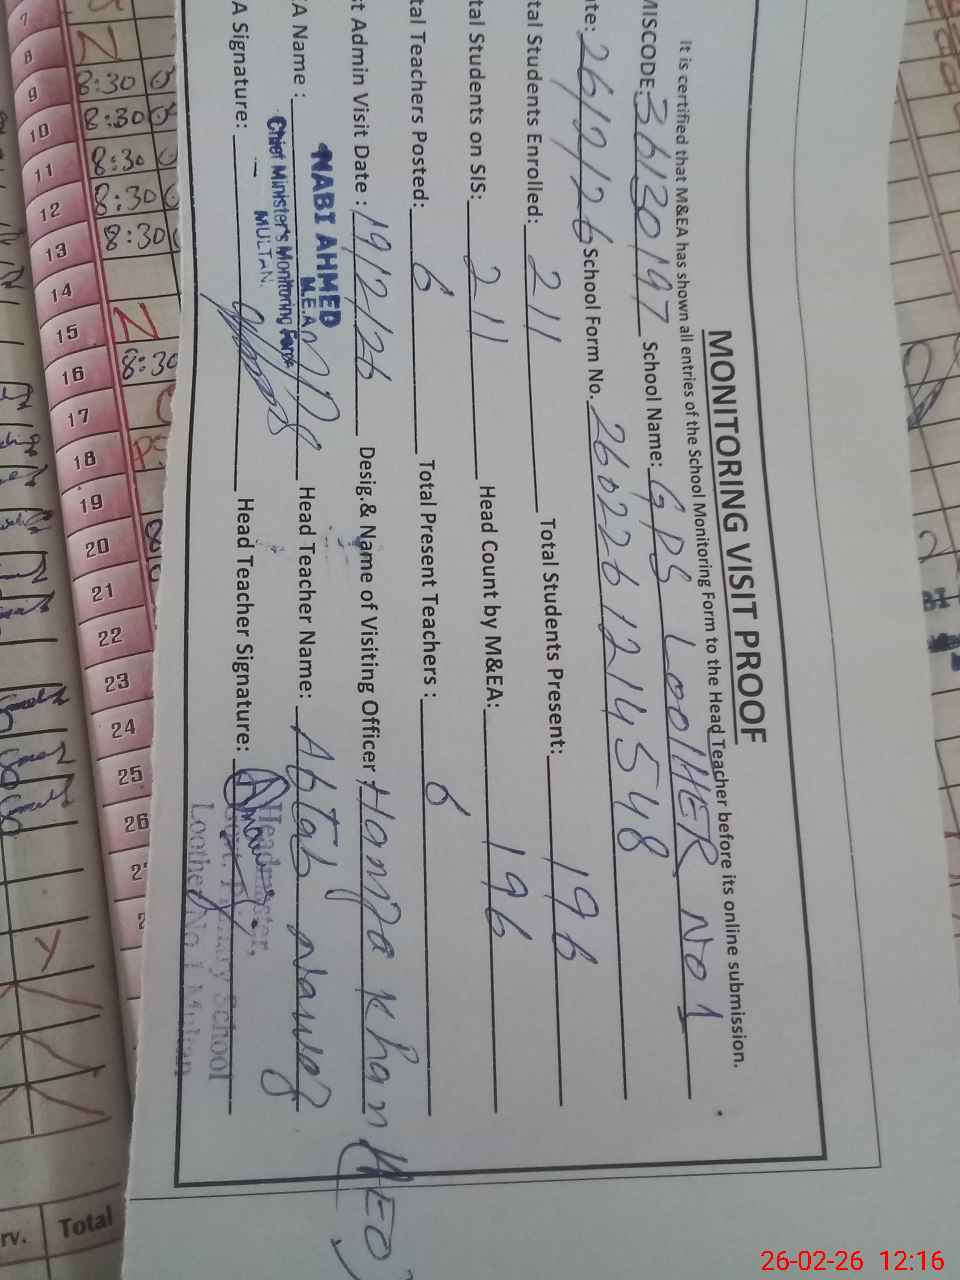 MONITORING VISIT PROOF
It is certified that M&EA has shown all entries of the School Monitoring Form to the Head Teacher before its online submission.
MISCODE: 36130197 School Name: GPS LOOTHER NO 1
ate: 26/2/26 School Form No. 2602261214548
tal Students Enrolled: 211 Total Students Present: 196
tal Students on SIS: 211 Head Count by M&EA: 196
tal Teachers Posted: 6 Total Present Teachers : 6
t Admin Visit Date : 19/2/26 Desig.& Name of Visiting Officer : Hamza Khan (AEO)
A Name : NABI AHMED Head Teacher Name: Aftab Nawaz
M.E.A
Chief Minister's Monitoring Force
MULTAN.
A Signature: Head Teacher Signature:
Headmaster,
Govt. Primary School
Loother No.1 Multan
7
8 N
9 8:30
10 8:30
11 8:30
12 8:30
13 8:30
14
15 N
16 8:30
17
18
19
20
21
22
23
24
25
26
2
2
rv. Total
26-02-26 12:16